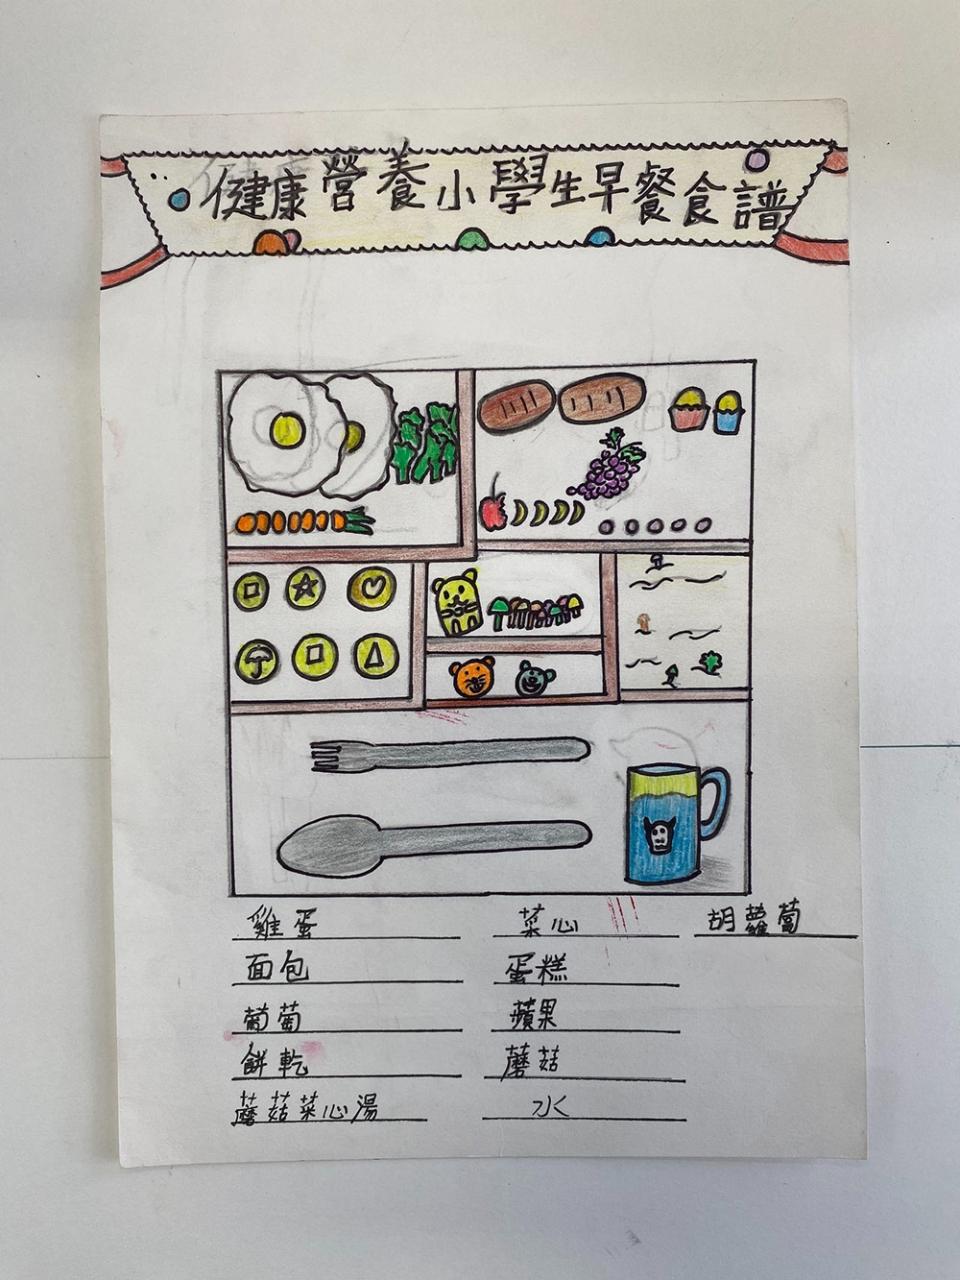 健康營養小學生早餐食譜
雞蛋 菜心 胡蘿蔔
面包 蛋糕
葡萄 蘋果
餅乾 蘑菇
蘑菇菜心湯 水